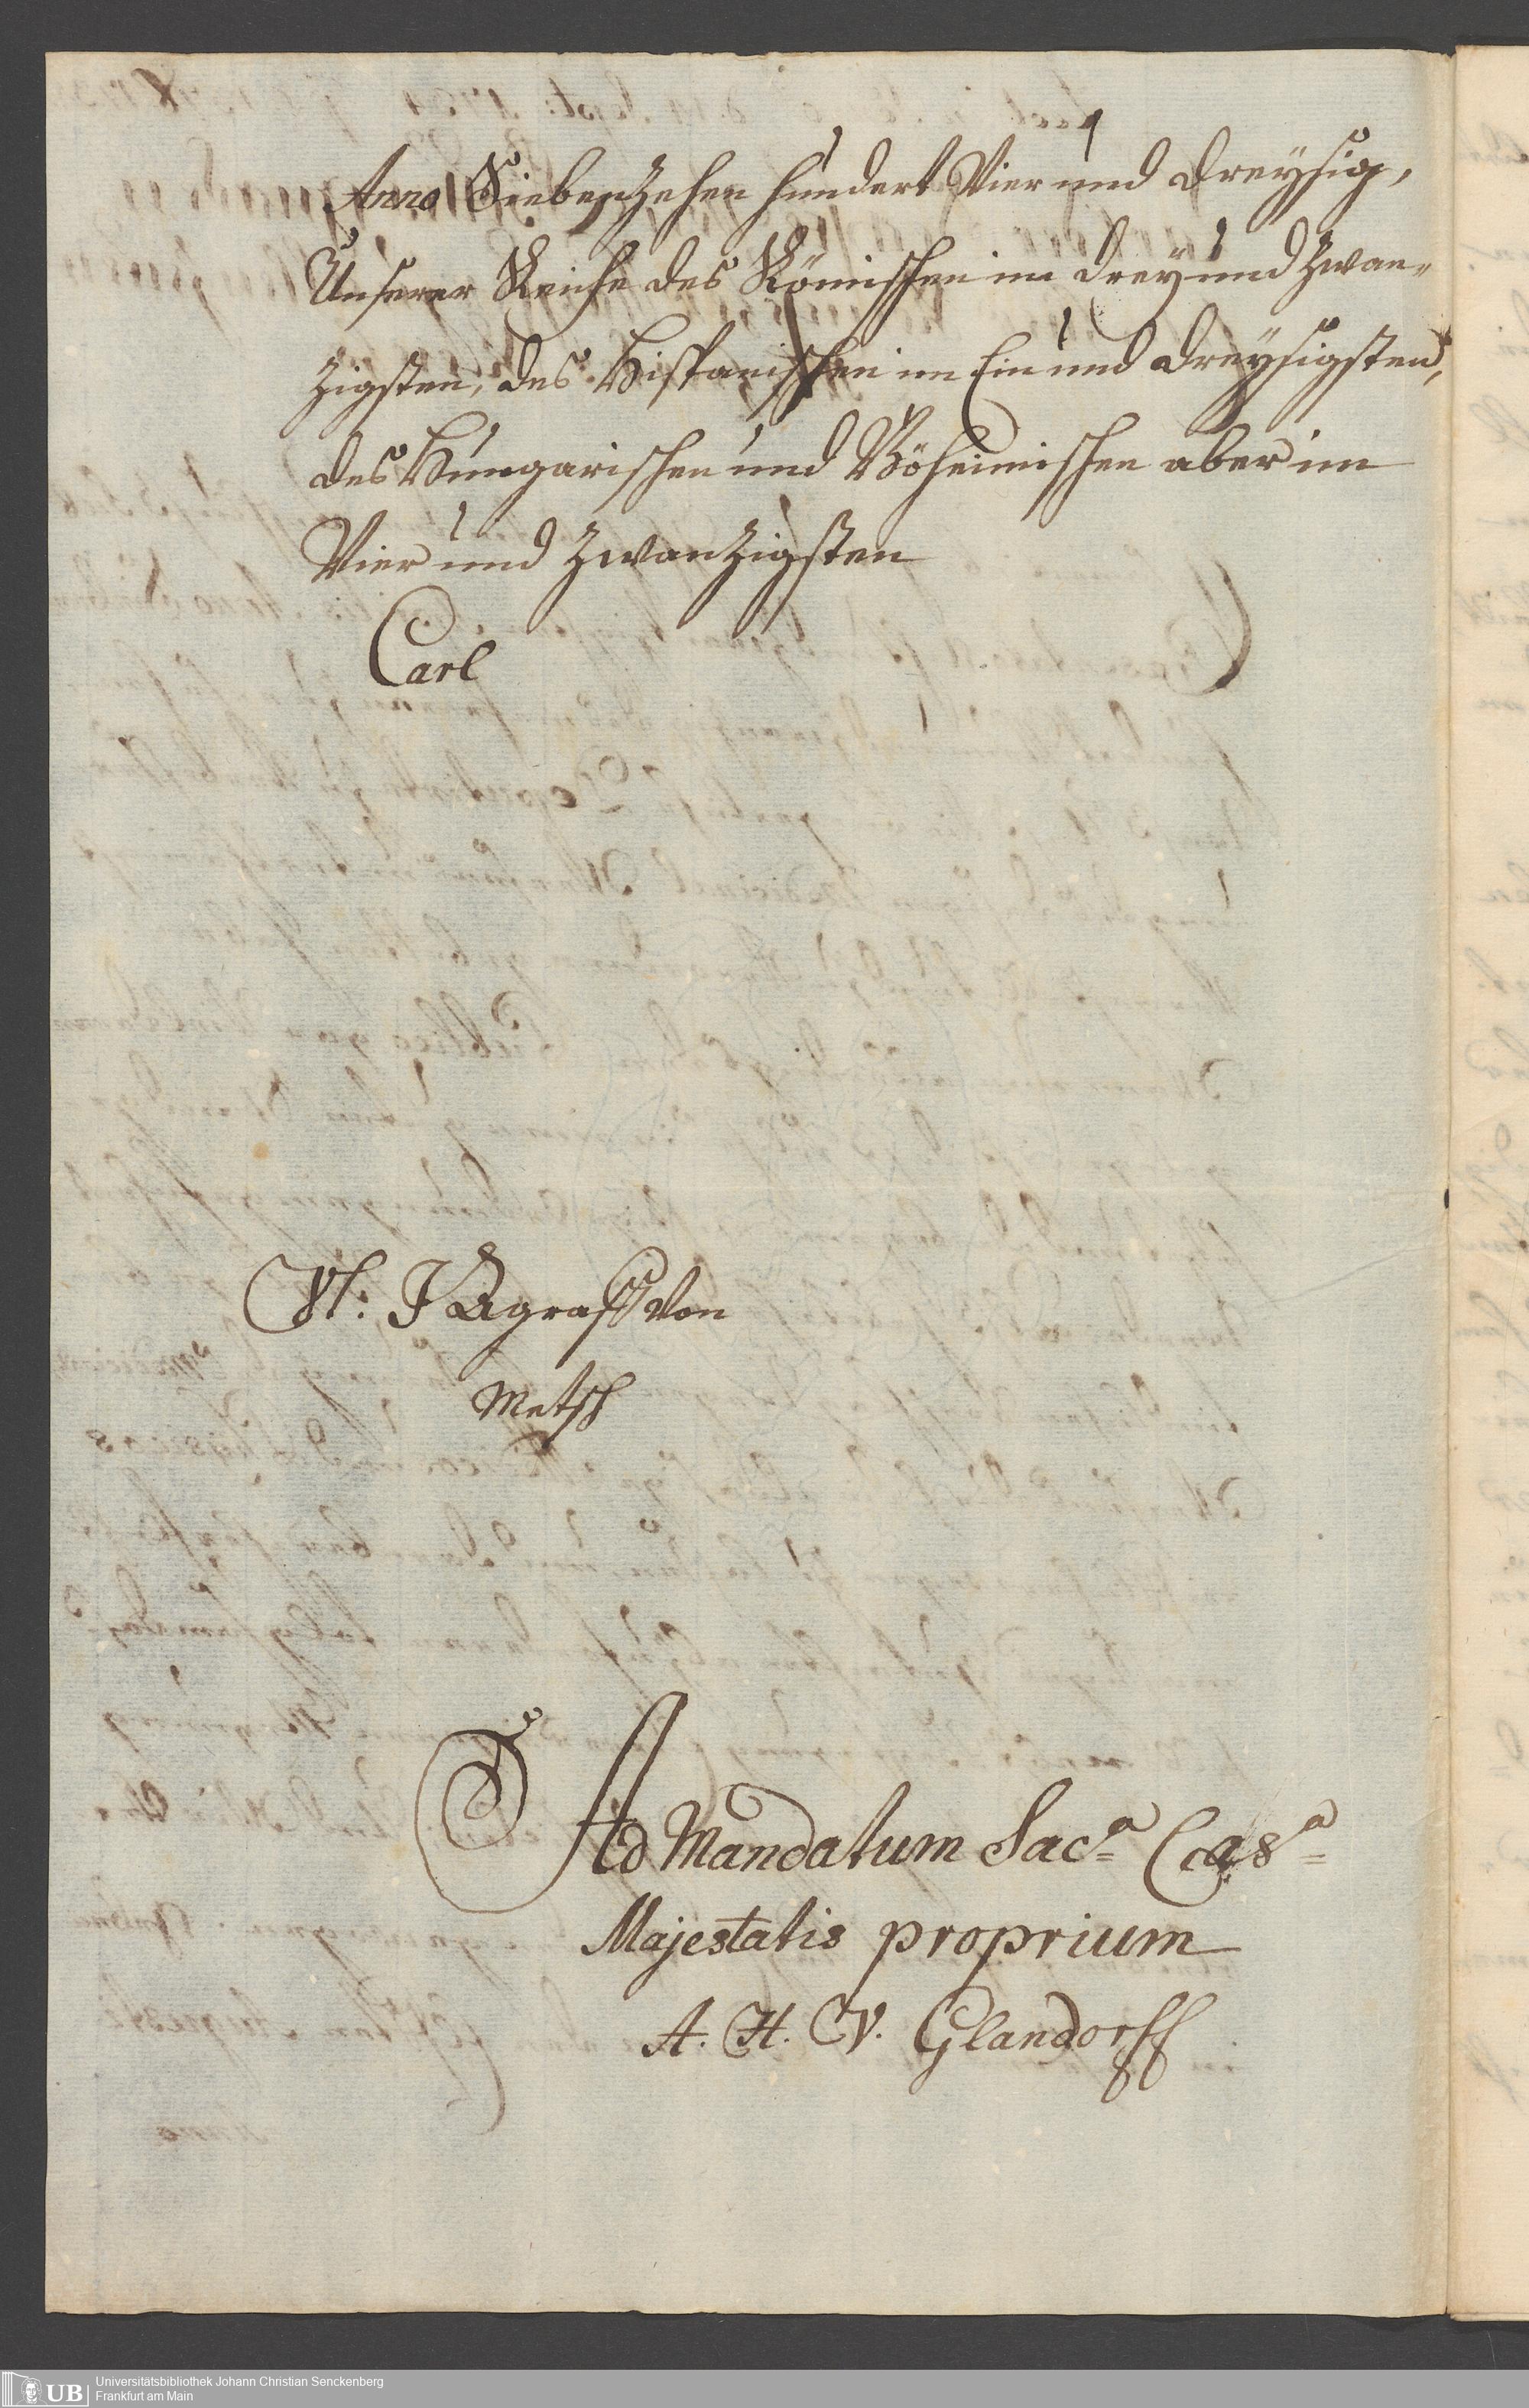 Anno Siebenzehen hundert Vier und dreysig,
Unserer Reiche des Römischen im drey und zwan-
zigsten, des Hispanischen im Ein und dreysigsten,
des Hungarischen und Böheimischen aber im
Vier und zwanzigsten
Carl
Vt: J A graff von
Metsch
Ad Mandatum Sac.ae Caes.ae
Majestatis proprium
A. H. V. Glandorff
UB
Universitätsbibliothek Johann Christian Senckenberg
Frankfurt am Main